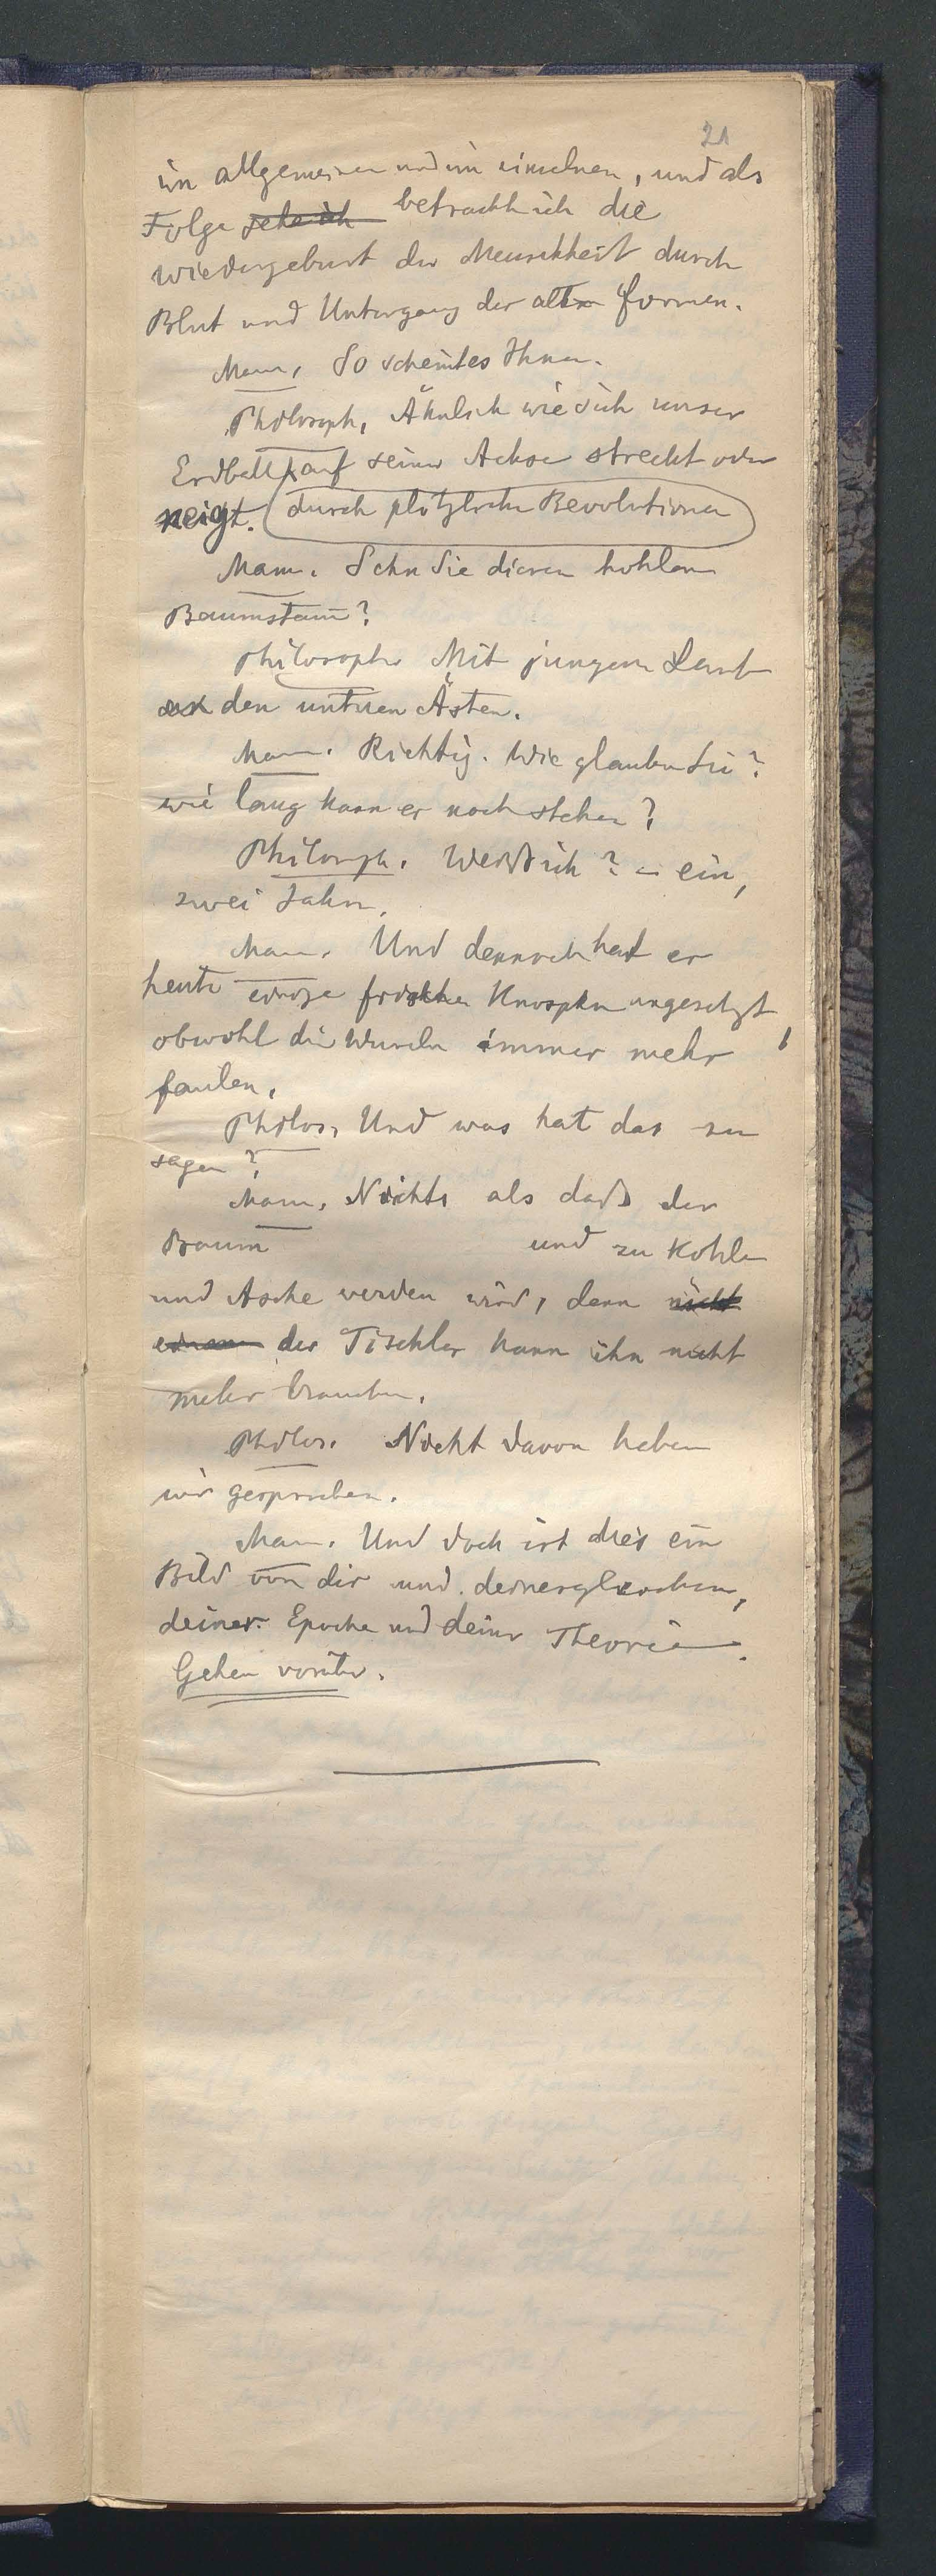 21
im allgemeinen und im einzelnen, und als
Folge sehe ich betracht ich die
Wiedergeburt der Menschheit durch
Blut und Untergang der alten Formen.
Mann. So scheint es Ihnen.
Philosoph. Ähnlich wie sich unser
Erdball auf seiner Achse streckt oder
neigt. durch plötzliche Revolutionen
Mann. Sehn Sie diesen hohlen
Baumstam̄?
Philosoph. Mit jungem Laub
an den unteren Ästen.
Mann. Richtig. Wie glauben Sie?
wie lang kann er noch stehen?
Philosoph. Weiß ich? – ein,
zwei Jahre.
Mann. Und dennoch hat er
heute einige frische Knospen angesetzt
obwohl die Wurzeln immer mehr
faulen.
Philos. Und was hat das zu
sagen?
Mann. Nichts als daß der
Baum und zu Kohle
und Asche werden wird, denn nicht
einem der Tischler kann ihn nicht
mehr brauchen.
Philos. Nicht davon haben
wir gesprochen.
Mann. Und doch ist dies ein
Bild von dir und deinesgleichen,
deiner Epoche und deiner Theorie.
Gehen vorüber.